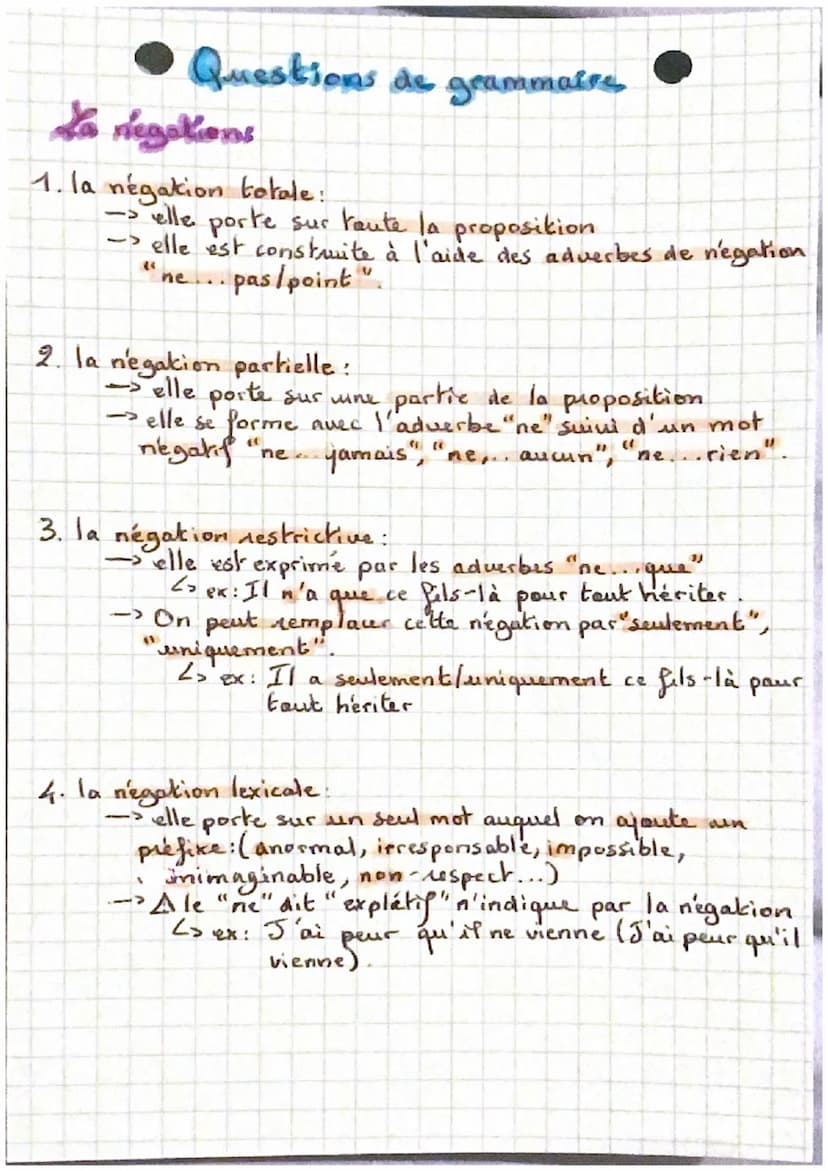 Questions de grammaire
La négations
1. la négation totale :
-> elle porte sur toute la proposition
-> elle est construite à l'aide des adverbes de négation
"ne... pas/point".
2. la négation partielle :
-> elle porte sur une partie de la proposition
-> elle se forme avec l'adverbe "ne" suivi d'un mot
négatif "ne... jamais", "ne... aucun", "ne...rien".
3. la négation restrictive :
-> elle est exprimé par les adverbes "ne...que"
↳ ex: Il n'a que ce fils-là pour tout hériter.
-> On peut remplacer cette négation par "seulement",
"uniquement".
↳ ex: Il a seulement/uniquement ce fils-là pour
tout hériter
4. la négation lexicale :
-> elle porte sur un seul mot auquel on ajoute un
préfixe : (anormal, irresponsable, impossible,
inimaginable, non-respect...)
-> ⚠ le "ne" dit "explétif" n'indique par la négation
↳ ex: J'ai peur qu'il ne vienne (J'ai peur qu'il
vienne).